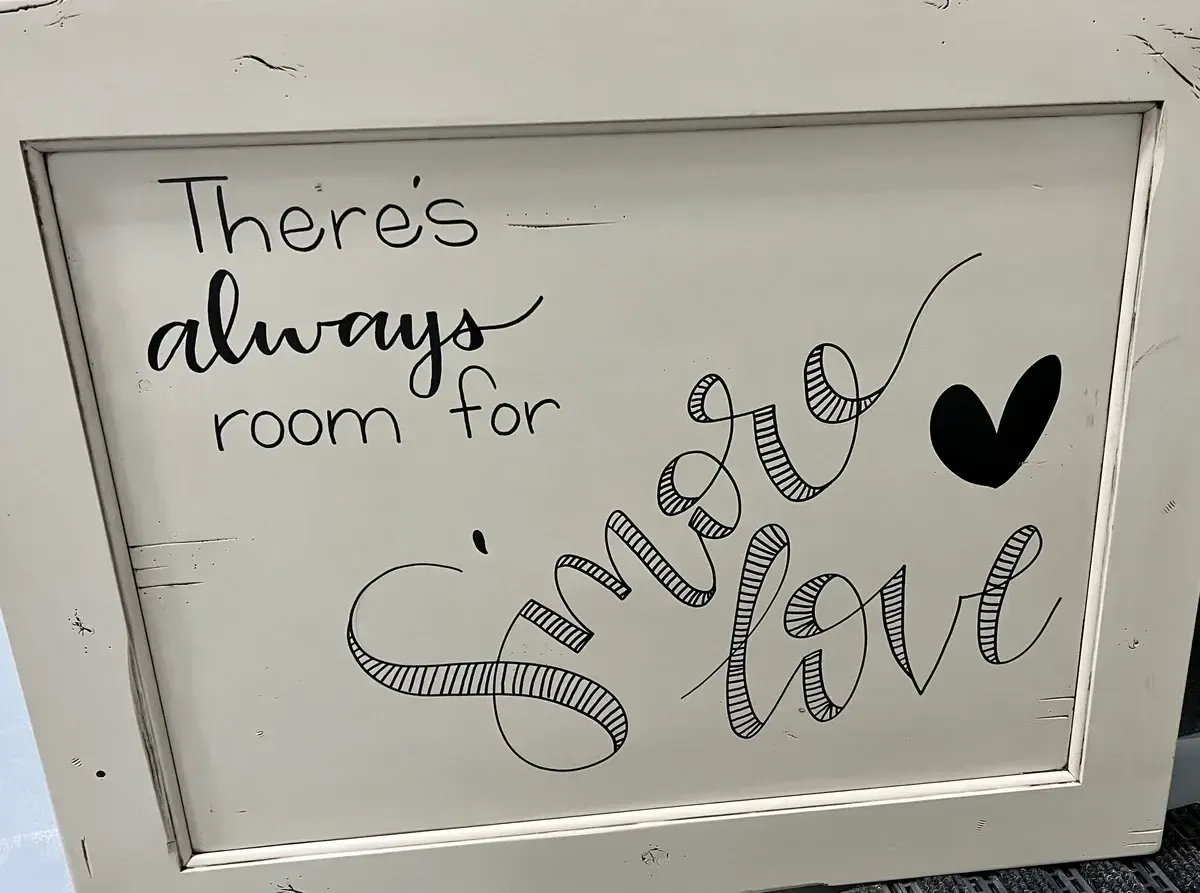 There's
always
room for
S'more
love